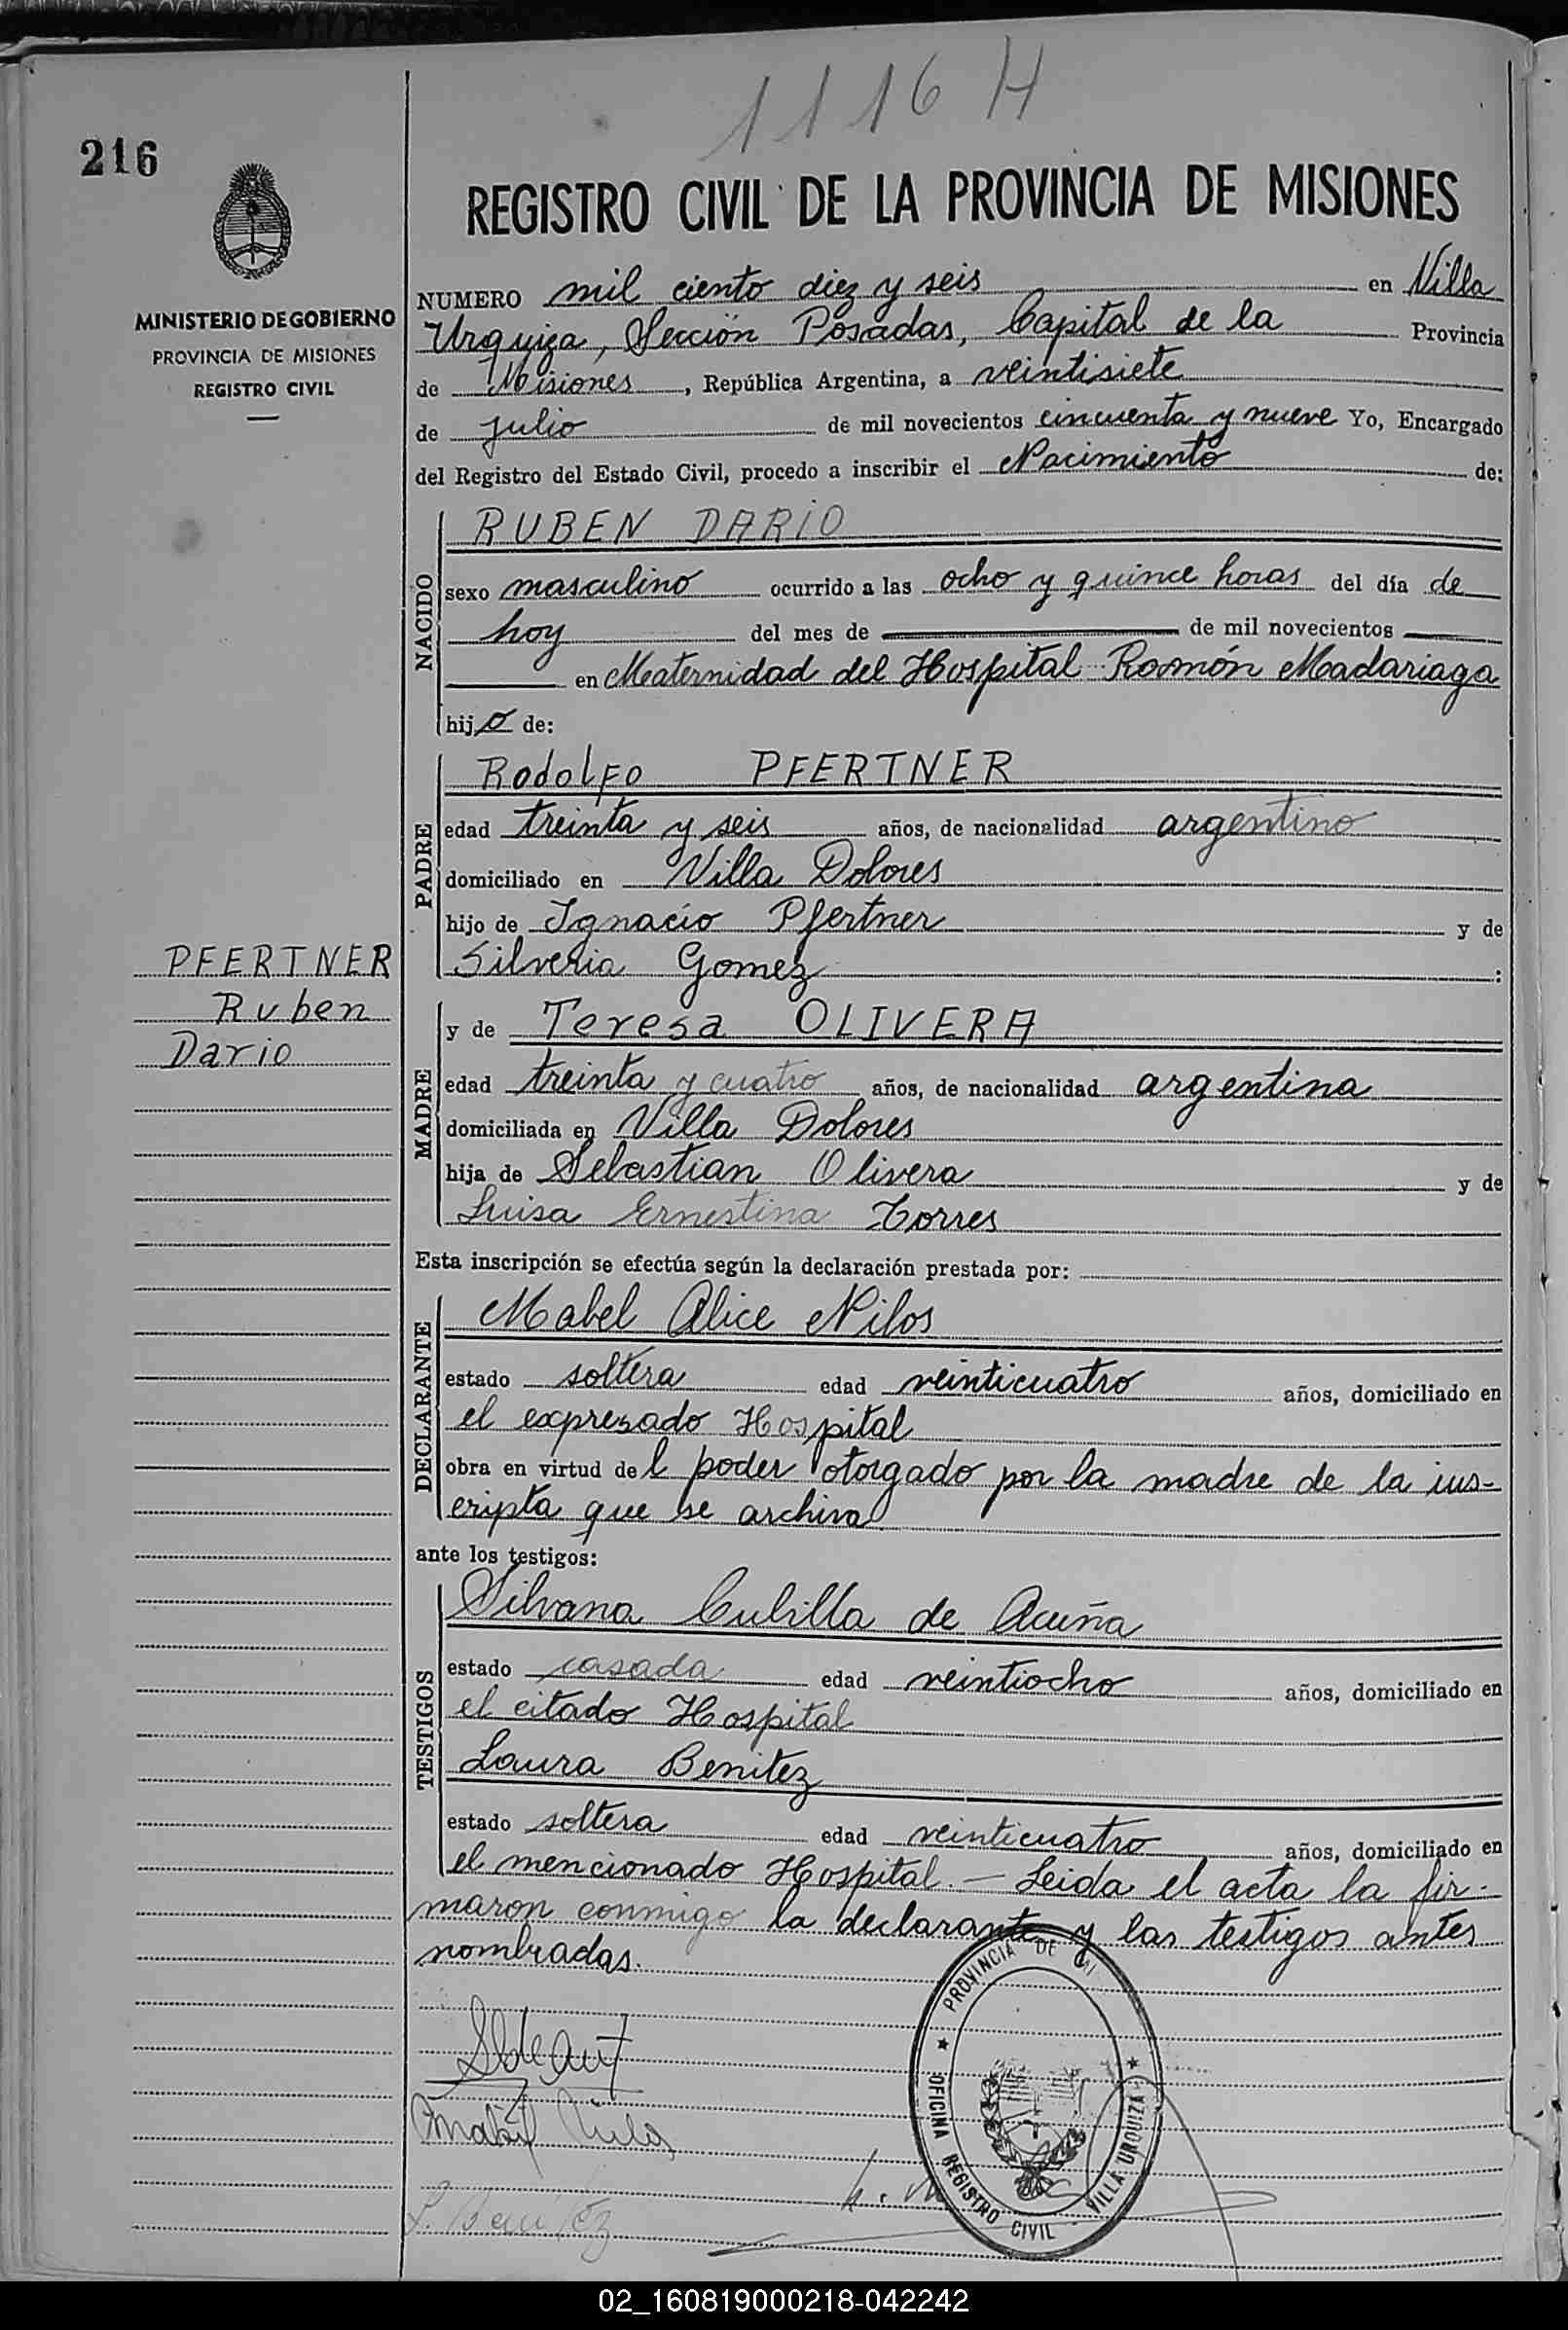 1116 H
216
REGISTRO CIVIL DE LA PROVINCIA DE MISIONES
MINISTERIO DE GOBIERNO
PROVINCIA DE MISIONES
REGISTRO CIVIL
NUMERO mil ciento diez y seis en Villa
Urquiza, Sección Posadas, Capital de la Provincia
de Misiones, República Argentina, a veintisiete
de julio de mil novecientos cincuenta y nueve Yo, Encargado
del Registro del Estado Civil, procedo a inscribir el Nacimiento de:
NACIDO
RUBEN DARIO
sexo masculino ocurrido a las ocho y quince horas del día de
hoy del mes de de mil novecientos
en Maternidad del Hospital Ramón Madariaga
hijo de:
PADRE
Rodolfo PFERTNER
edad treinta y seis años, de nacionalidad argentino
domiciliado en Villa Dolores
hijo de Ignacio Pfertner y de
Silveria Gomez :
PFERTNER
Ruben
Dario
MADRE
y de Teresa OLIVERA
edad treinta y cuatro años, de nacionalidad argentina
domiciliada en Villa Dolores
hija de Sebastian Olivera y de
Luisa Ernestina Torres
Esta inscripción se efectúa según la declaración prestada por:
DECLARANTE
Mabel Alice Nilos
estado soltera edad veinticuatro años, domiciliado en
el expresado Hospital
obra en virtud del poder otorgado por la madre de la ins-
cripta que se archiva
ante los testigos:
TESTIGOS
Silvana Cubilla de Acuña
estado casada edad veintiocho años, domiciliado en
el citado Hospital
Laura Benitez
estado soltera edad veinticuatro años, domiciliado en
el mencionado Hospital.- Leida el acta la fir-
maron conmigo la declarante y las testigos antes
nombradas.
PROVINCIA DE MI
OFICINA REGISTRO CIVIL - VILLA URQUIZA
L. Benitez
02_160819000218-042242